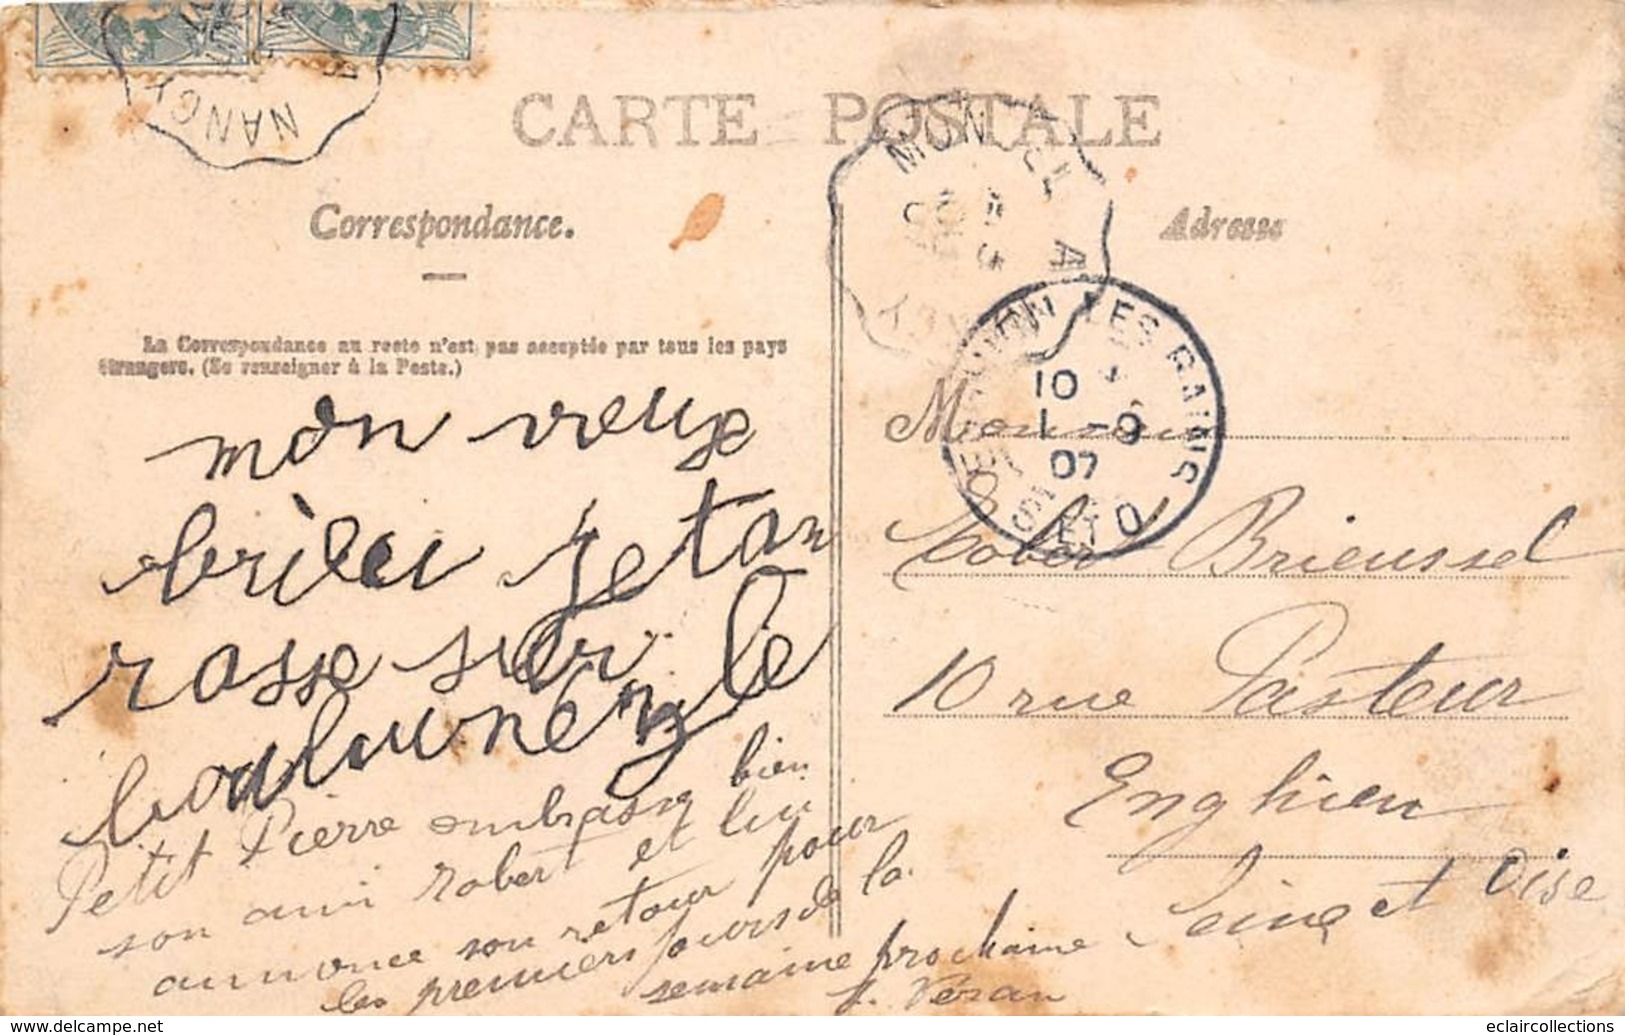 CARTE POSTALE
Correspondance.
Adresse
La Correspondance au recto n'est pas acceptée par tous les pays
étrangers. (Se renseigner à la Poste.)
NANCY
MONT
A
LES BAINS
10
1 - 9
07
ET O
mon veux
Je tan
rasse sur le
Petit Pierre embrasse bien
son ami Robert et lui
annonce son retour pour
les premiers jours de la
semaine prochaine
P. Véran
Monsieur
Robert Brieussel
10 rue Pasteur
Enghien
Seine et Oise
www.delcampe.net
eclaircollections